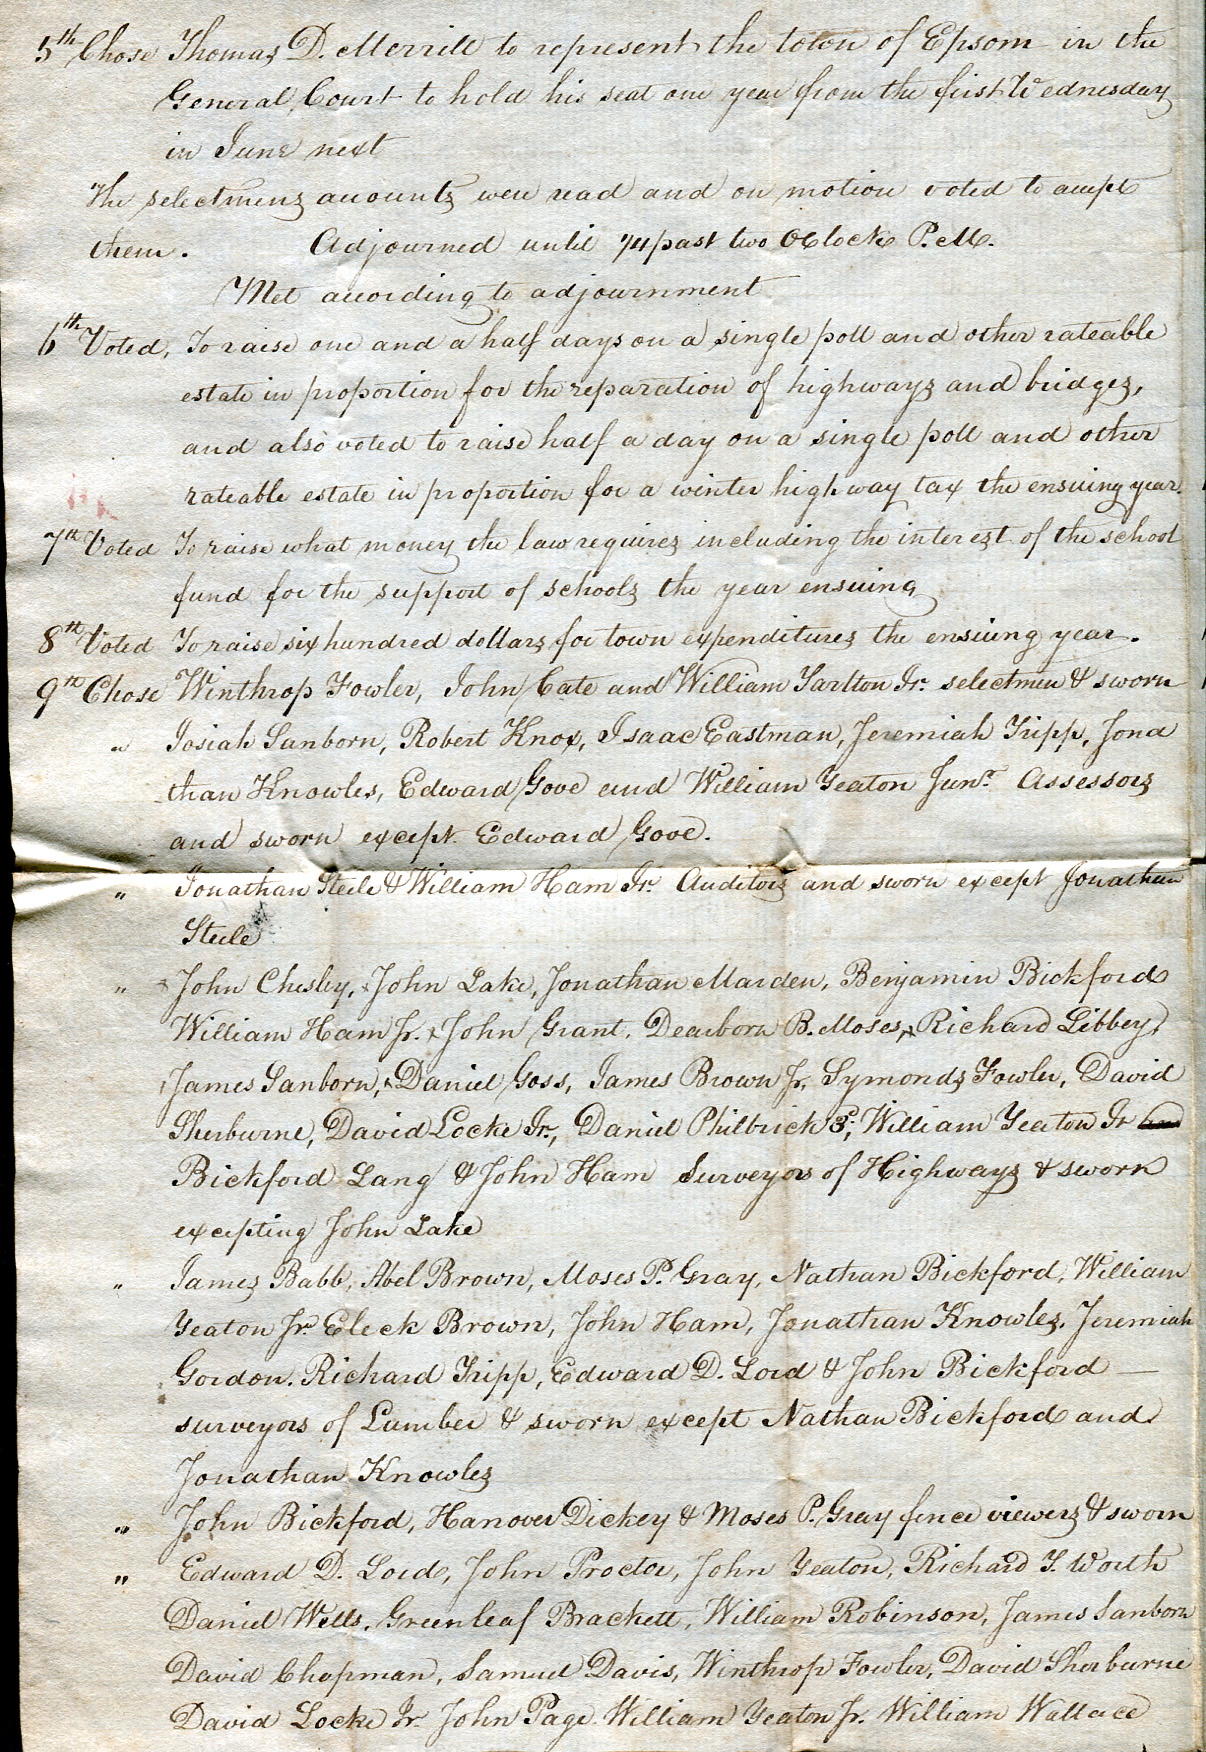 5th Chose Thomas D. Merrill to represent the town of Epsom in the
General Court to hold his seat one year from the first Wednesday
in June next
The selectmens accounts were read and on motion voted to accept
them. Adjourned until 1/4 past two OClock P.M.
Met according to adjournment
6th Voted, To raise one and a half days on a single poll and other rateable
estate in proportion for the reparation of highways and bridges,
and also voted to raise half a day on a single poll and other
rateable estate in proportion for a winter highway tax the ensuing year.
7th Voted To raise what money the law requires including the interest of the school
fund for the support of schools the year ensuing
8th Voted To raise six hundred dollars for town expenditures the ensuing year.
9th Chose Winthrop Fowler, John Cate and William Tarlton Jr. selectmen & sworn
" Josiah Sanborn, Robert Knox, Isaac Eastman, Jeremiah Tripp, Jona
than Knowles, Edward Gove and William Yeaton Junr. Assessors
and sworn except Edward Gove.
" Jonathan Steele & William Ham Jr. Auditors and sworn except Jonathan
Steele
" John Chesley, John Lake, Jonathan Marden, Benjamin Bickford
William Ham Jr. John Grant, Dearborn B. Moses, Richard Libbey,
James Sanborn, Daniel Goss, James Brown Jr, Symonds Fowler, David
Sherburne, David Locke Jr., Daniel Philbrick 3d, William Yeaton Jr and
Bickford Lang & John Ham Surveyors of Highways & sworn
excepting John Lake
" James Babb, Abel Brown, Moses P. Gray, Nathan Bickford, William
Yeaton Jr. Eleck Brown, John Ham, Jonathan Knowles, Jeremiah
Gordon, Richard Tripp, Edward D. Lord & John Bickford —
surveyors of Lumber & sworn except Nathan Bickford and
Jonathan Knowles
" John Bickford, Hanover Dickey & Moses P. Gray fence viewers & sworn
" Edward D. Lord, John Proctor, John Yeaton, Richard T. Worth
Daniel Wells, Greenleaf Brackett, William Robinson, James Sanborn
David Chapman, Samuel Davis, Winthrop Fowler, David Sherburne
David Locke Jr. John Page William Yeaton Jr. William Wallace